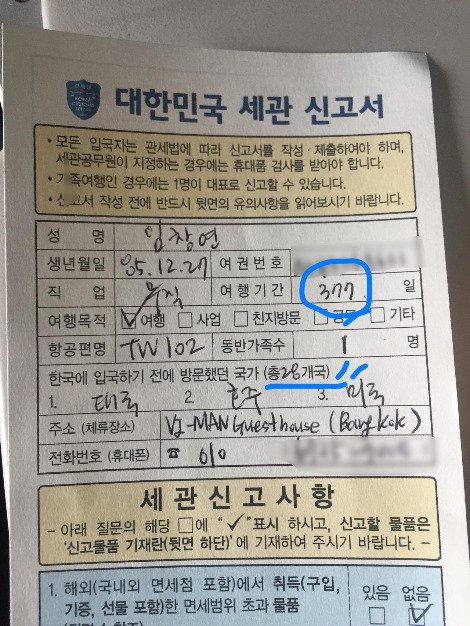 대한민국 세관 신고서
• 모든 입국자는 관세법에 따라 신고서를 작성·제출하여야 하며,
세관공무원이 지정하는 경우에는 휴대품 검사를 받아야 합니다.
• 가족여행인 경우에는 1명이 대표로 신고할 수 있습니다.
• 신고서 작성 전에 반드시 뒷면의 유의사항을 읽어보시기 바랍니다.
성 명 임창연
생년월일 85.12.27 여권번호
직 업 무직 여행기간 377 일
여행목적 ☑여행 □사업 □친지방문 □공무 □기타
항공편명 TW102 동반가족수 1 명
한국에 입국하기 전에 방문했던 국가 (총28개국)
1. 태국 2. 호주 3. 미국
주소 (체류장소) VJ-MAN Guesthouse (Bangkok)
전화번호 (휴대폰) ☎ 010
세관신고사항
- 아래 질문의 해당 □에 "✓"표시 하시고, 신고할 물품은
'신고물품 기재란(뒷면 하단)'에 기재하여 주시기 바랍니다. -
1. 해외(국내외 면세점 포함)에서 취득(구입, 있음 없음
기증, 선물 포함)한 면세범위 초과 물품 □ ☑